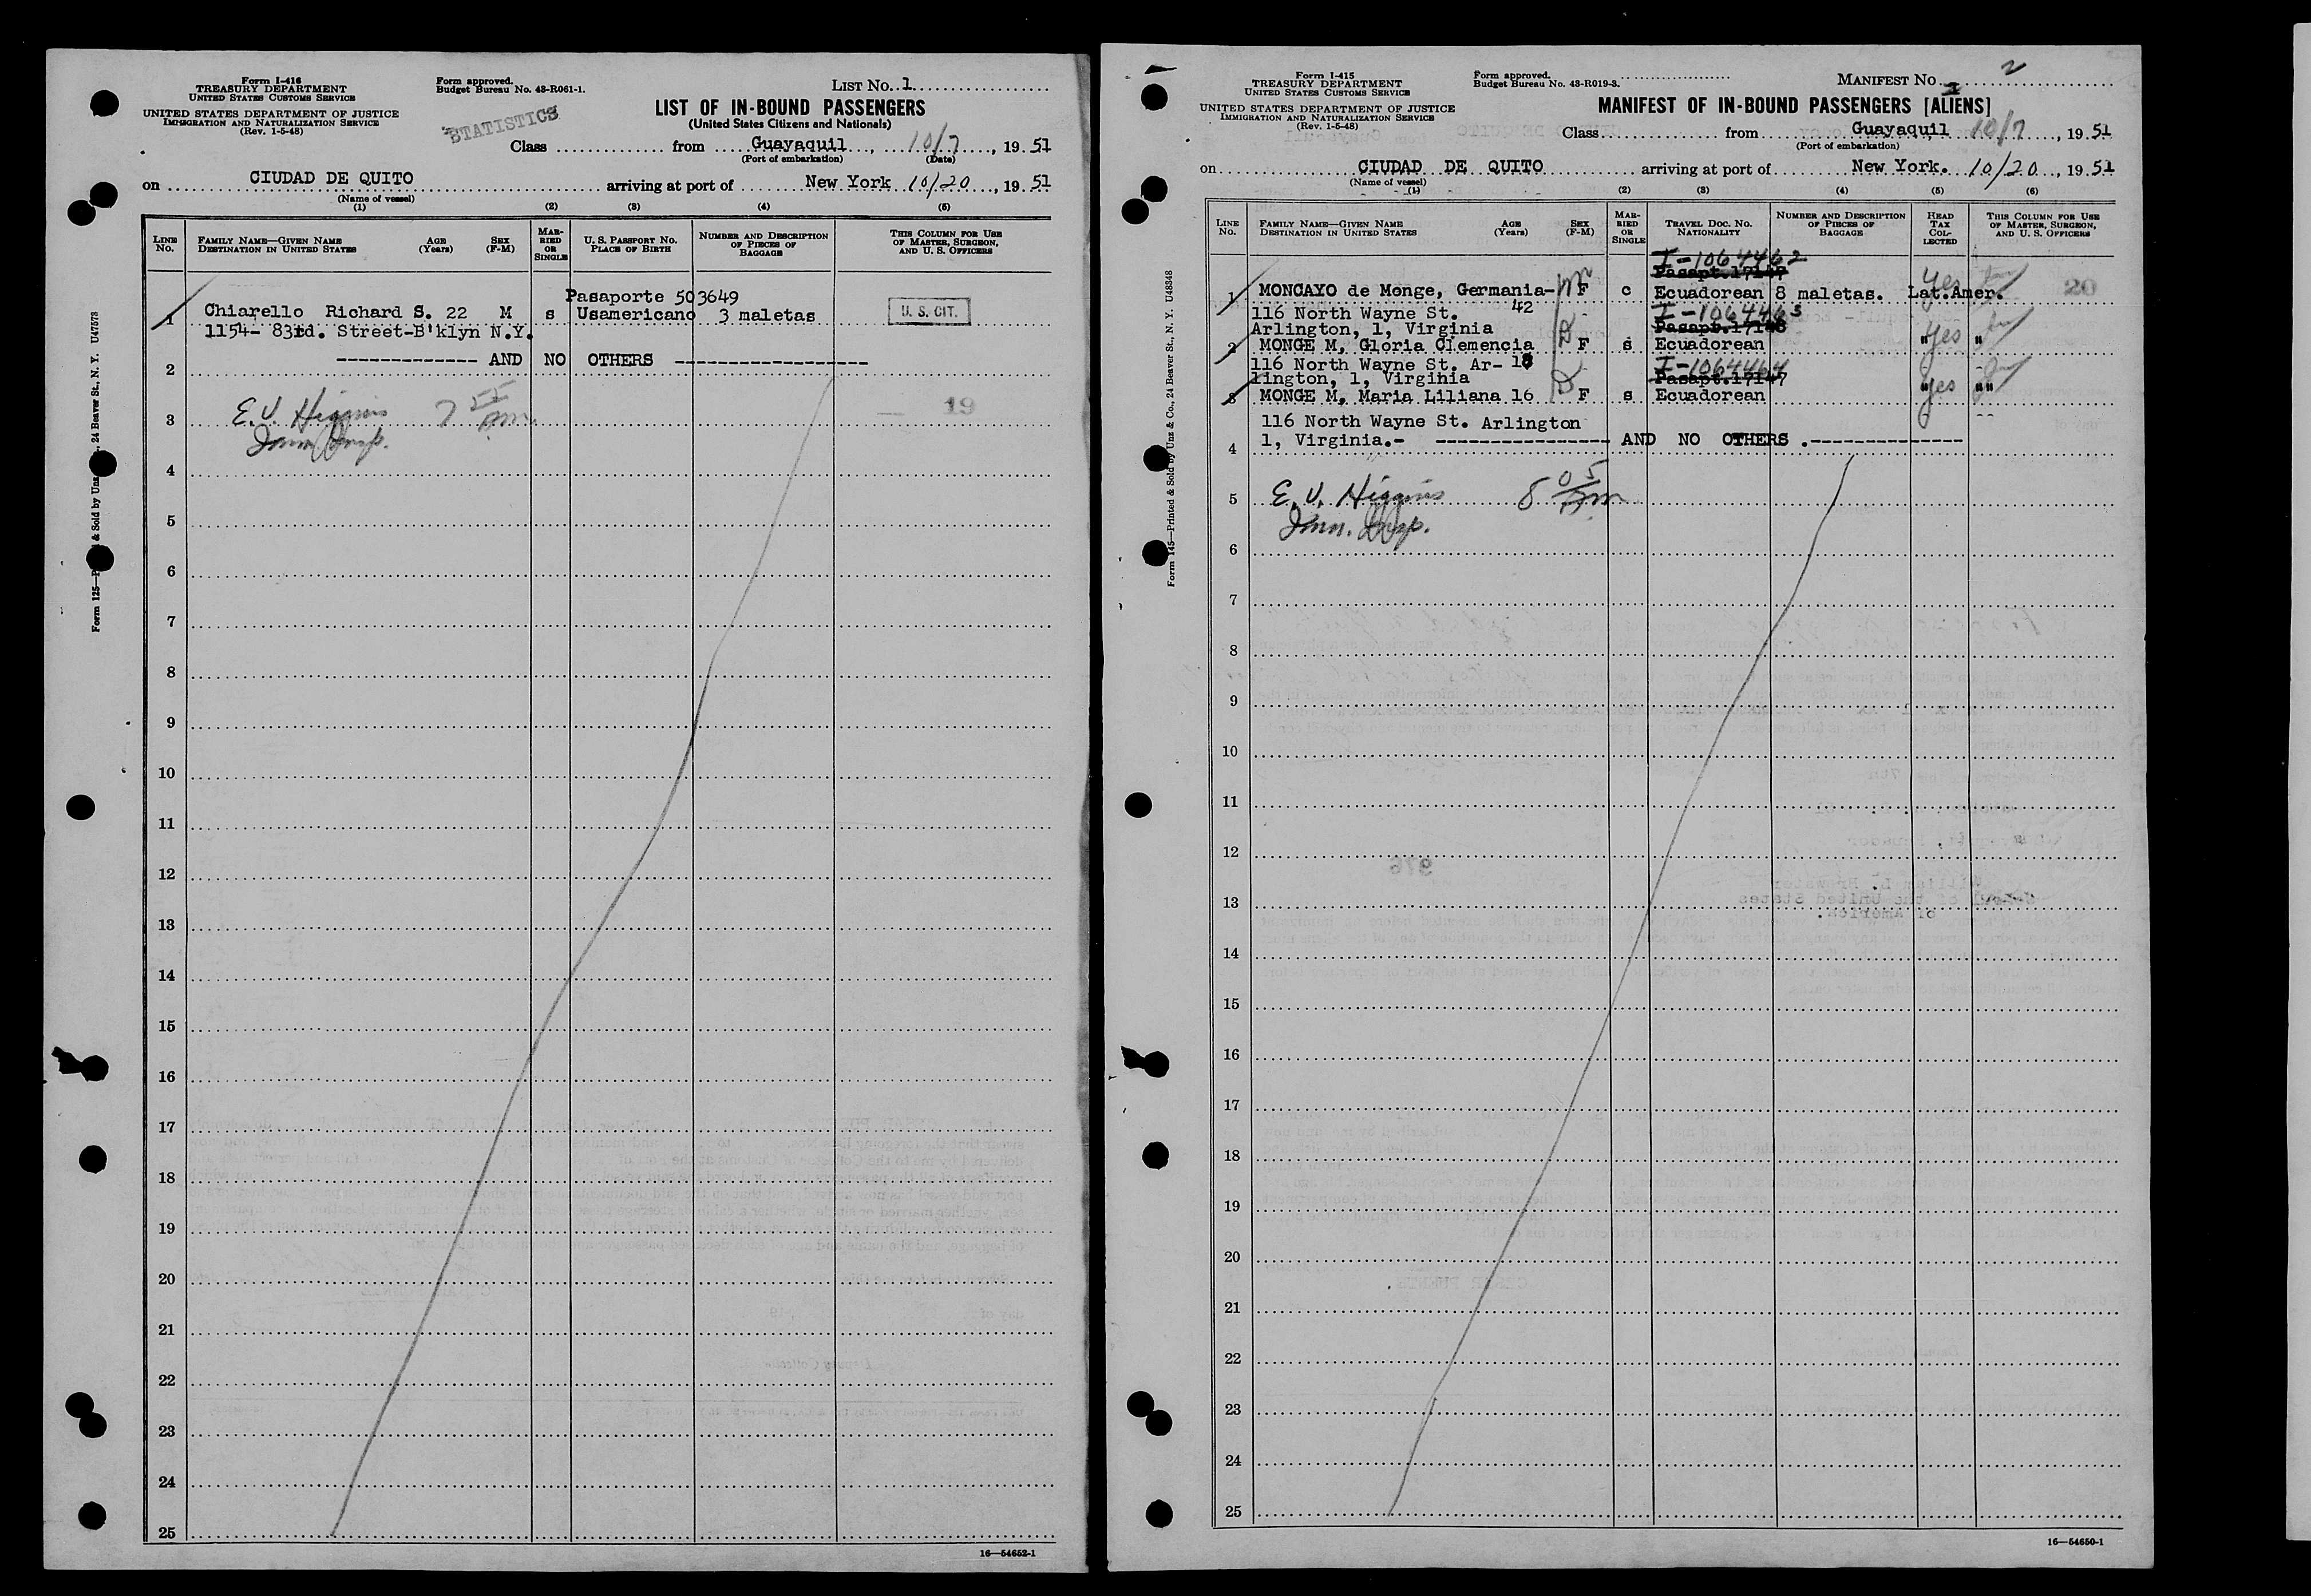 Form I-416
TREASURY DEPARTMENT
UNITED STATES CUSTOMS SERVICE
UNITED STATES DEPARTMENT OF JUSTICE
IMMIGRATION AND NATURALIZATION SERVICE
(Rev. 1-5-48)
Form approved.
Budget Bureau No. 43-R061-1.
STATISTICS
LIST No. 1
LIST OF IN-BOUND PASSENGERS
(United States Citizens and Nationals)
Class from Guayaquil, 10/7, 1951
(Port of embarkation) (Date)
on CIUDAD DE QUITO arriving at port of New York 10/20, 1951
(Name of vessel)
(1) (2) (3) (4) (5)
LINE No.
FAMILY NAME—GIVEN NAME
DESTINATION IN UNITED STATES
AGE (Years)
SEX (F-M)
MARRIED OR SINGLE
U. S. PASSPORT NO.
PLACE OF BIRTH
NUMBER AND DESCRIPTION OF PIECES OF BAGGAGE
THIS COLUMN FOR USE OF MASTER, SURGEON, AND U. S. OFFICERS
Pasaporte 503649
1 Chiarello Richard S. 22 M s Usamericano 3 maletas U. S. CIT.
1154- 83rd. Street-B'klyn N.Y.
------------- AND NO OTHERS ------------------
2
E. V. Higgins 7 55 am 19
3
Imm. Insp.
4
5
6
7
8
9
10
11
12
13
14
15
16
17
18
19
20
21
22
23
24
25
16—54652-1
24 Beaver St., N. Y. U47573
Form I-415
TREASURY DEPARTMENT
UNITED STATES CUSTOMS SERVICE
UNITED STATES DEPARTMENT OF JUSTICE
IMMIGRATION AND NATURALIZATION SERVICE
(Rev. 1-5-48)
Form approved.
Budget Bureau No. 43-R019-3.
MANIFEST No. 2
MANIFEST OF IN-BOUND PASSENGERS [ALIENS]
Class from Guayaquil 10/7, 1951
(Port of embarkation)
on CIUDAD DE QUITO arriving at port of New York. 10/20, 1951
(Name of vessel)
(1) (2) (3) (4) (5) (6)
LINE No.
FAMILY NAME—GIVEN NAME
DESTINATION IN UNITED STATES
AGE (Years)
SEX (F-M)
MARRIED OR SINGLE
TRAVEL DOC. NO.
NATIONALITY
NUMBER AND DESCRIPTION OF PIECES OF BAGGAGE
HEAD TAX COLLECTED
THIS COLUMN FOR USE OF MASTER, SURGEON, AND U. S. OFFICERS
I-1064462
Pasapt.17147
1 MONCAYO de Monge, Germania- F c Ecuadorean 8 maletas. Yes Lat.Amer. 20
116 North Wayne St. 42
I-1064463
Arlington, 1, Virginia Pasapt.17148
2 MONGE M, Gloria Clemencia F s Ecuadorean " Yes "
116 North Wayne St. Ar- 18
I-1064464
lington, 1, Virginia Pasapt.17147
3 MONGE M, Maria Liliana 16 F s Ecuadorean " Yes ""
116 North Wayne St. Arlington
1, Virginia.- ----------------- AND NO OTHERS .---------------
4
E. V. Higgins 8 05 am
5
Imm. Insp.
6
7
8
9
10
11
12
13
14
15
16
17
18
19
20
21
22
23
24
25
16—54650-1
Form 145—Printed & Sold by Unz & Co., 24 Beaver St., N. Y. U48348